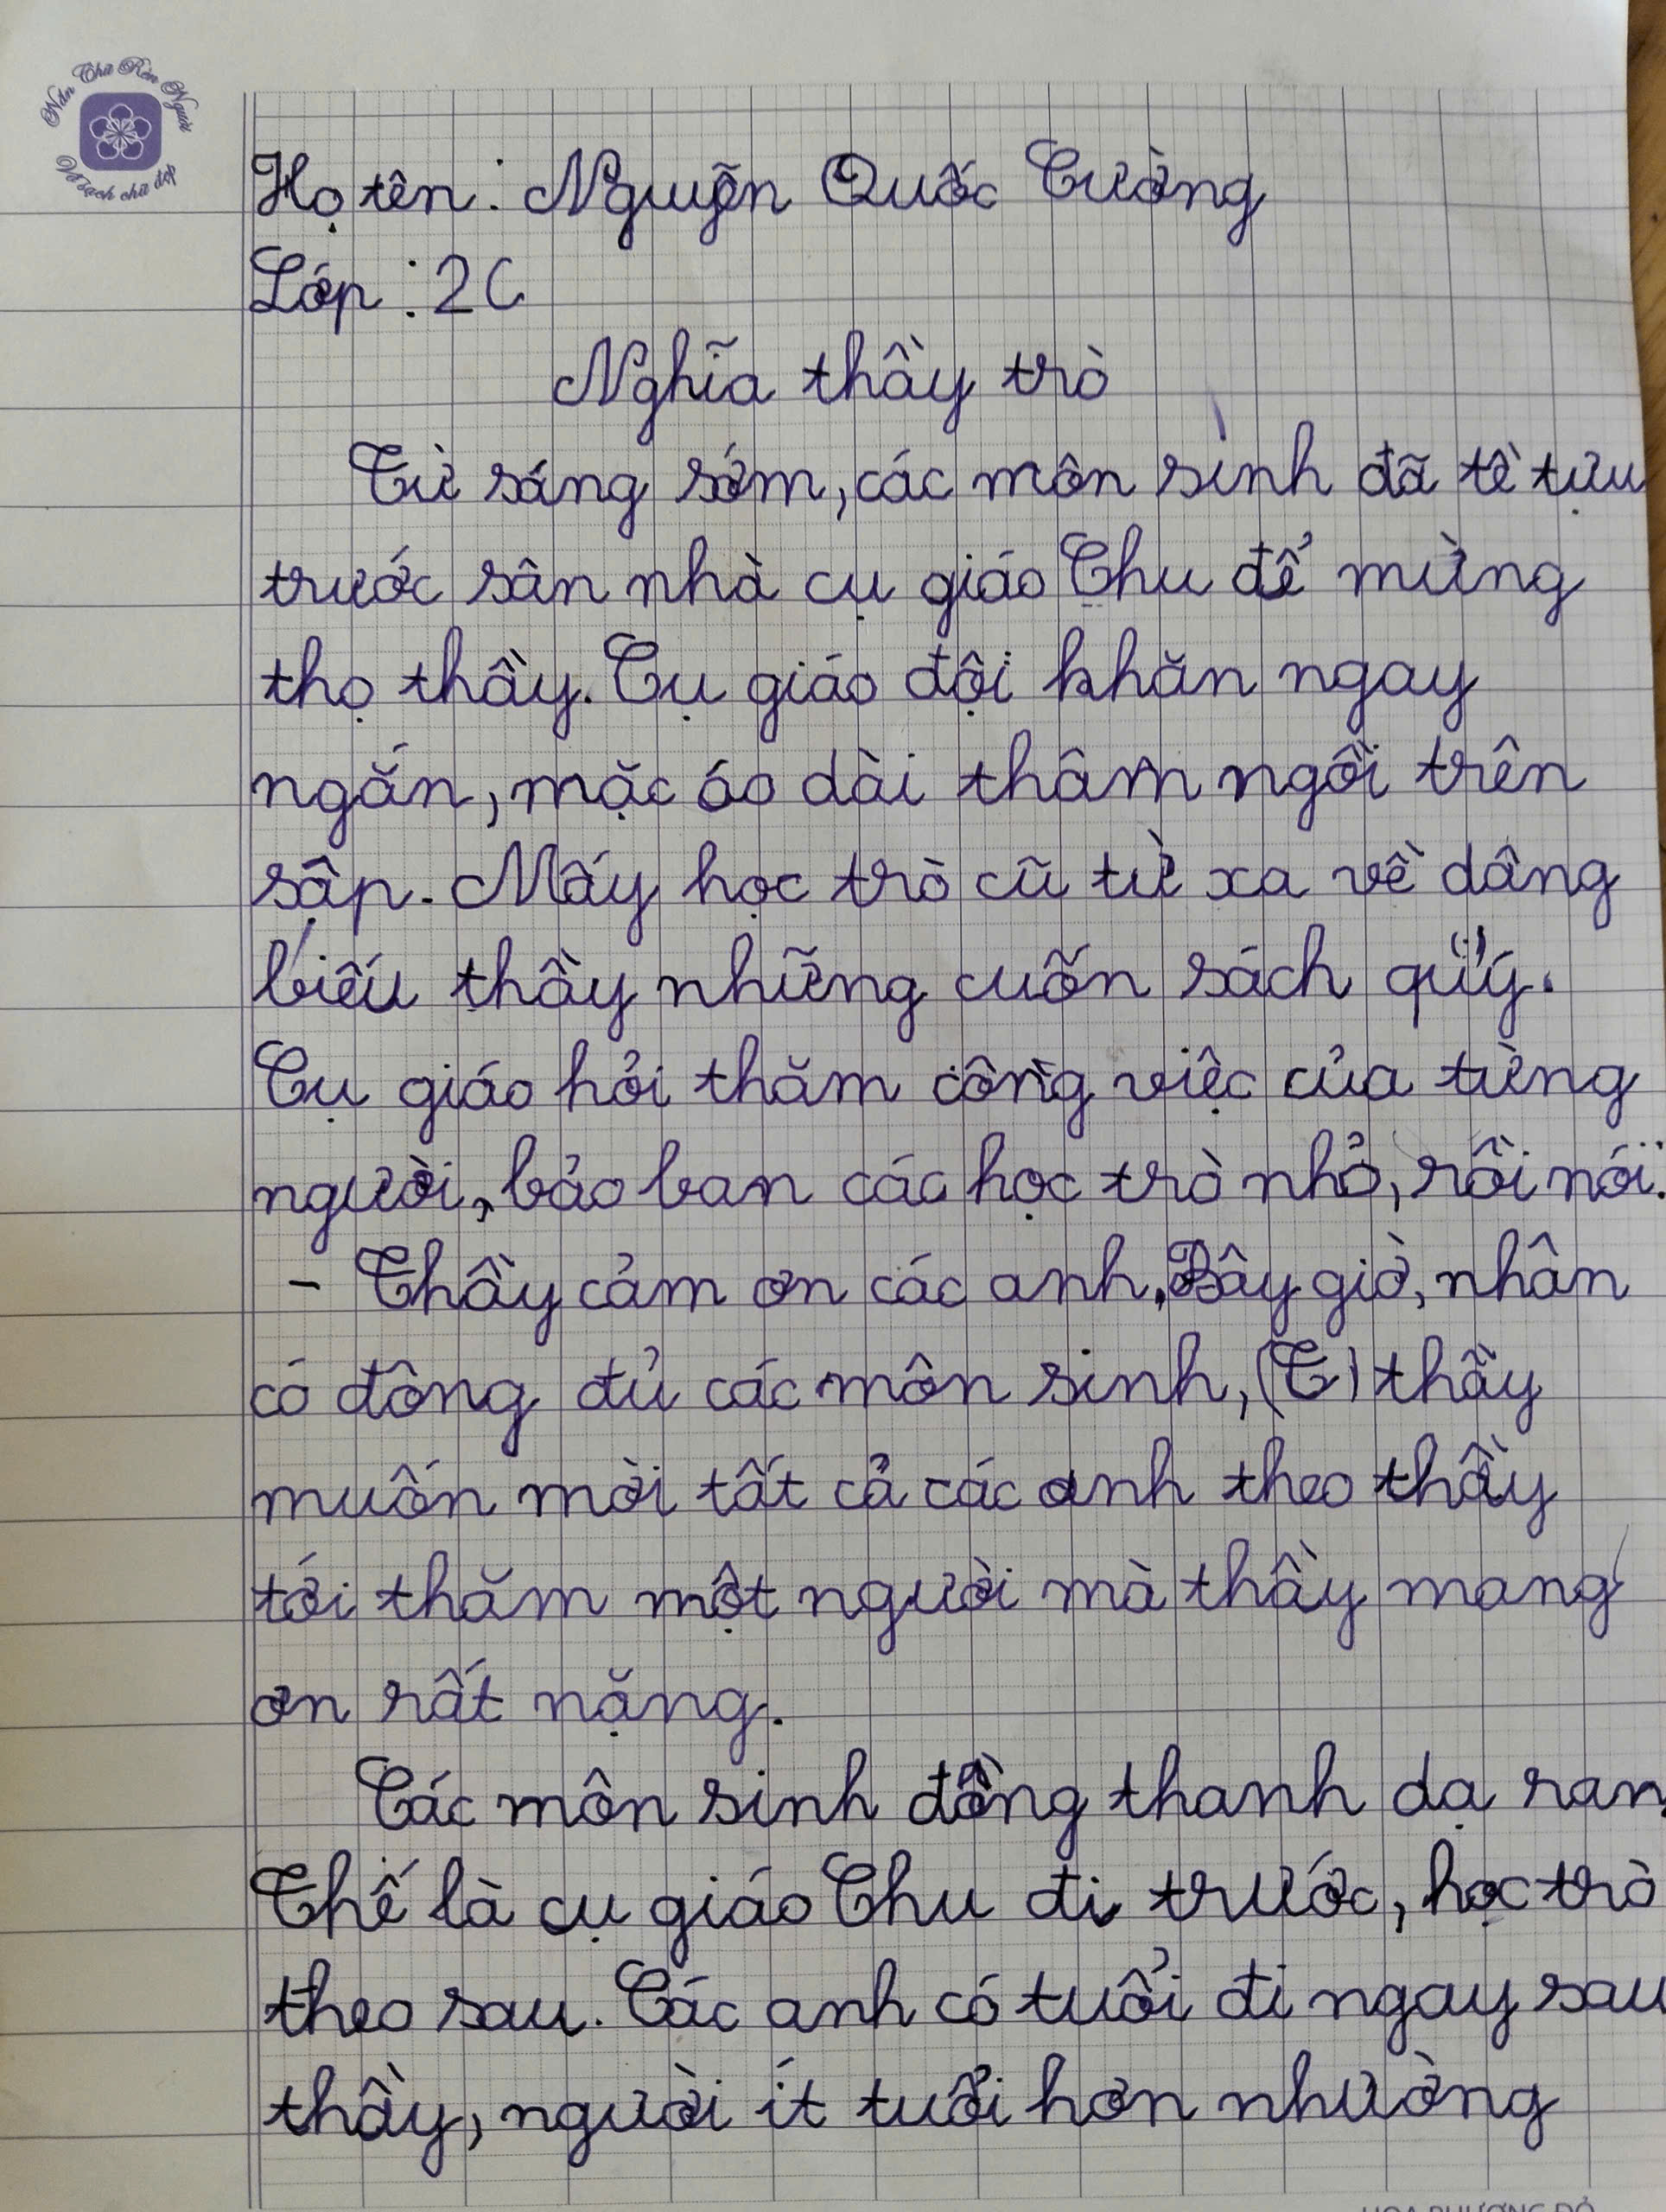 Nắn Chữ Rèn Người
Vở sạch chữ đẹp
Họ tên: Nguyễn Quốc Cường
Lớp: 2C
Nghĩa thầy trò
Từ sáng sớm, các môn sinh đã tề tựu
trước sân nhà cụ giáo Chu để mừng
thọ thầy. Cụ giáo đội khăn ngay
ngắn, mặc áo dài thâm ngồi trên
sập. Mấy học trò cũ từ xa về dâng
biếu thầy những cuốn sách quý.
Cụ giáo hỏi thăm công việc của từng
người, bảo ban các học trò nhỏ, rồi nói:
- Thầy cảm ơn các anh. Bây giờ, nhân
có đông đủ các môn sinh, (T) thầy
muốn mời tất cả các anh theo thầy
tới thăm một người mà thầy mang
ơn rất nặng.
Các môn sinh đồng thanh dạ ran.
Thế là cụ giáo Chu đi trước, học trò
theo sau. Các anh có tuổi đi ngay sau
thầy, người ít tuổi hơn nhường
HOA PHƯỢNG ĐỎ